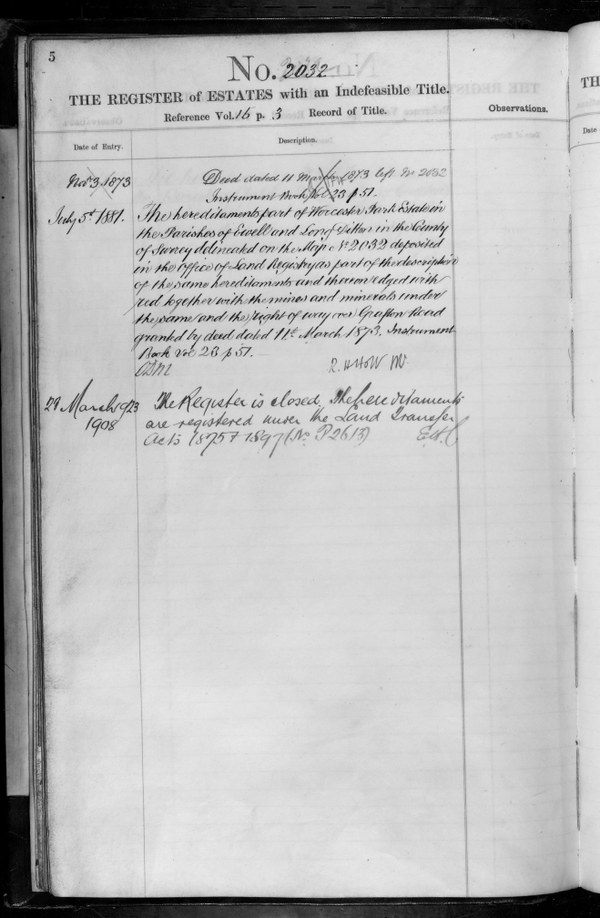 5
No. 2032
THE REGISTER of ESTATES with an Indefeasible Title.
Reference Vol. 16 p. 3 Record of Title.
Observations.
Date of Entry.
Description.
Novr 3 1873
Deed dated 11 March 1873 left No 2032
Instrument Book Vol 23 p 51.
July 5th 1881.
The hereditaments part of Worcester Park Estate in
the Parishes of Ewell and Long Ditton in the County
of Surrey delineated on the Map No 2032 deposited
in the Office of Land Registry as part of the description
of the same hereditaments and thereon edged with
red together with the mines and minerals under
the same and the right of way over Grafton Road
granted by deed dated 11th March 1873. Instrument
Book Vol 23 p 51.
R. H. Holt
29 March
1908
The Register is closed, The hereditaments
are registered under the Land Transfer
Acts 1875 & 1897 (No. P2613)
TH
Date